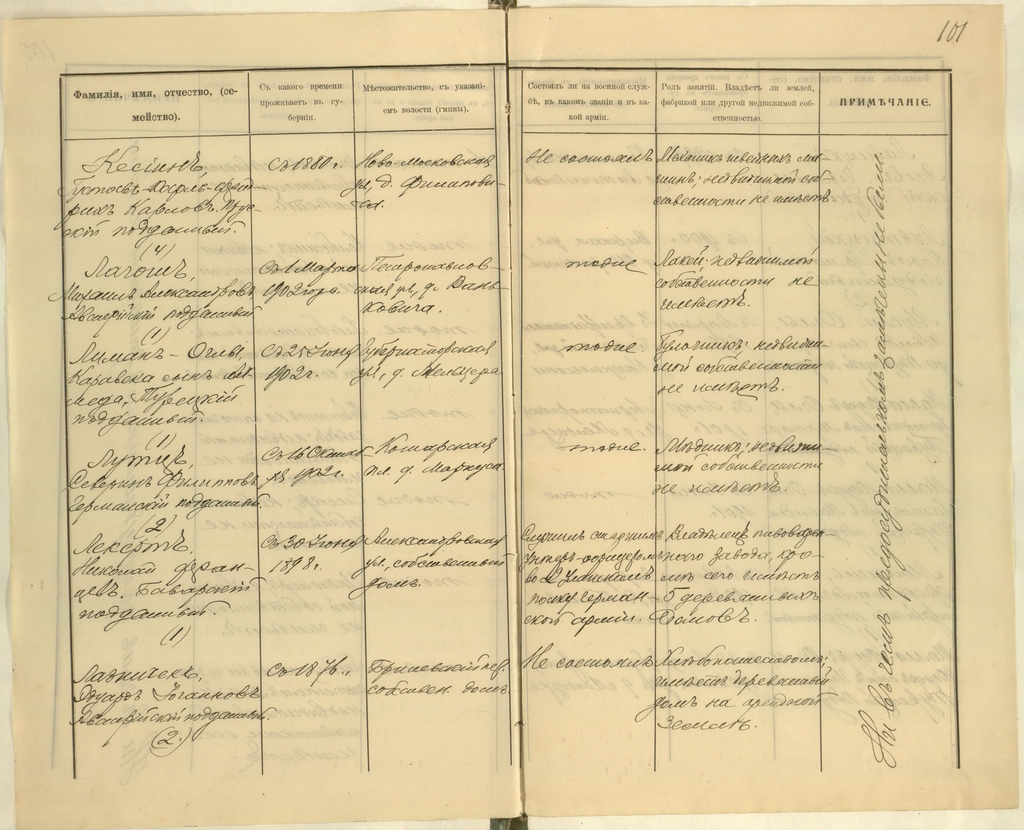 101
Фамилія, имя, отчество, (се-
мейство).
Съ какого времени
проживаетъ въ гу-
берніи.
Мѣстожительство, съ указані-
емъ волости (гмины).
Состоялъ ли на военной служ-
бѣ, въ какомъ званіи и въ ка-
кой арміи.
Родъ занятій. Владѣетъ ли землей,
фабрикой или другой недвижимой соб-
ственностью.
ПРИМѢЧАНІЕ.
Карловъ. Прус-
скій подданный.
(4)
Съ 1880 г.
Ново-Московская
ул, д. Филипови-
ча.
Не состоялъ
Механикъ швейныхъ ма-
шинъ; недвижимой соб-
ственности не имѣетъ
Михаилъ Александровъ
Австрійскій подданный
(1)
Съ 1 Марта
1902 года.
Петропавлов-
ская ул, д. Вань-
ковича.
тоже
Лакей; недвижимой
собственности не
имѣетъ.
Лиманъ-Оглы,
сынъ
Турецкій
подданный.
(1)
Съ 25 Іюня
1902 г.
Губернаторская
ул, д. Мельцера
тоже
Булочникъ; недвижи-
мой собственности
не имѣетъ.
Лутицъ,
Северинъ Филипповъ
Германскій подданный.
(2)
1902 г.
пл. д. Маркуса
тоже
недвижи-
мой собственности
не имѣетъ.
Лекертъ,
Николай Фран-
цевъ. Баварскій
подданный.
(1)
Съ 30 Іюня
1898 г.
Александровская
ул, собственный
домъ.
Служилъ старшимъ
унтеръ-офицеромъ
полку Герман-
ской арміи.
Владѣлецъ пивовар-
ного завода, кро-
мѣ сего имѣетъ
5 деревянныхъ
домовъ.
Ладничекъ,
Эдуардъ Іоганновъ
Австрійскій подданный.
(2)
Съ 1876 г.
пер.
собствен. домъ
Не состоялъ
имѣетъ деревянный
домъ на арендной
землѣ.
Ни въ чемъ предосудительномъ замѣчены не были.